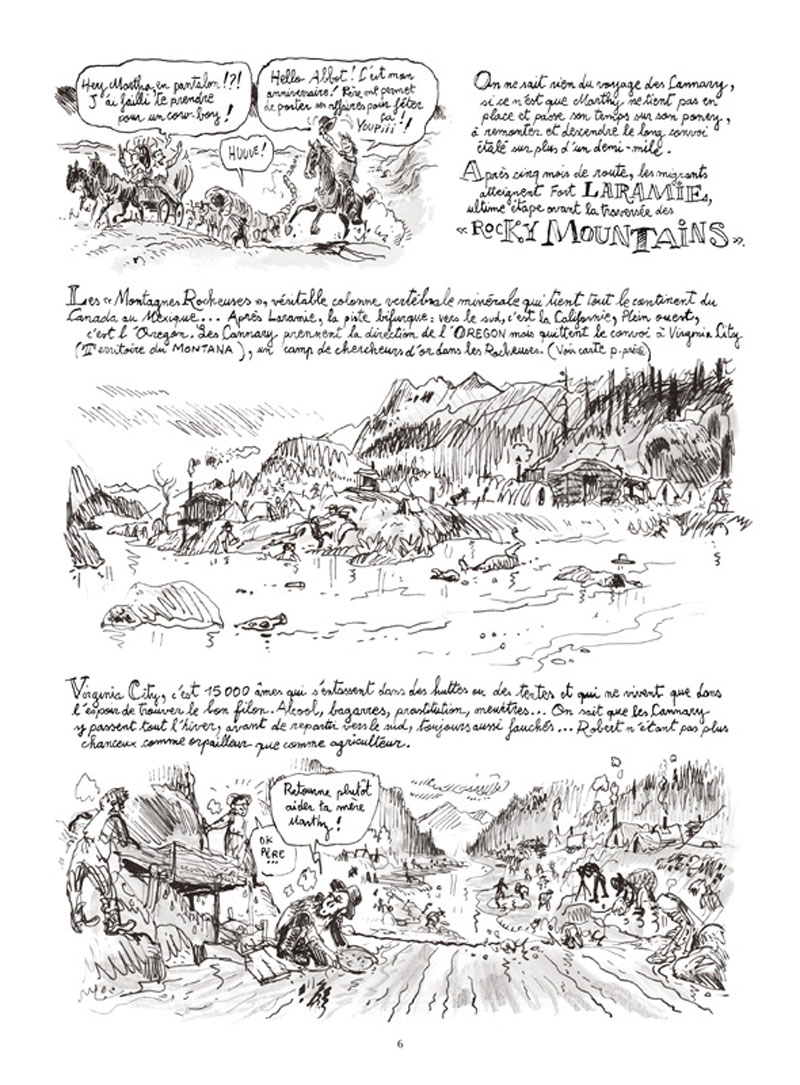 Hey, Martha, en pantalon!?!
J'ai failli te prendre
pour un cow-boy!
Hello Abbot! C'est mon
anniversaire! Père me permet
de porter ses affaires pour fêter
ça!
YOUPiii!!
HUUUE!
On ne sait rien du voyage des Cannary,
si ce n'est que Marthy ne tient pas en
place et passe son temps sur son poney,
à remonter et descendre le long convoi
étalé sur plus d'un demi-mile.
Après cinq mois de route, les migrants
atteignent Fort LARAMiE,
ultime étape avant la traversée des
«ROCKY MOUNTAiNS».
Les «Montagnes Rocheuses», véritable colonne vertébrale minérale qui tient tout le continent du
Canada au Mexique... Après Laramie, la piste bifurque: vers le sud, c'est la Californie, Plein ouest,
c'est l'Oregon. Les Cannary prennent la direction de l'OREGON mais quittent le convoi à Virginia City
(Territoire du MONTANA), un camp de chercheurs d'or dans les Rocheuses. (Voir carte p.
Virginia City, c'est 15000 âmes qui s'entassent dans des huttes ou des tentes et qui ne vivent que dans
l'espoir de trouver le bon filon. Alcool, bagarres, prostitution, meurtres... On sait que les Cannary
y passent tout l'hiver, avant de repartir vers le sud, toujours aussi fauchés... Robert n'étant pas plus
chanceux comme orpailleur que comme agriculteur.
Retourne plutôt
aider ta mère
Marthy!
OK
PÈRE
...
6